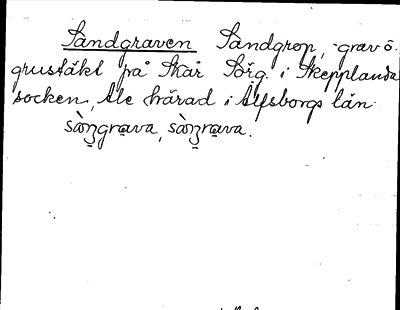 Sandgraven Sandgrop, -grav o.
grustäkt på Skår Sörg. i Skepplanda
socken, Ale härad i Älfsborgs län.
sàn̥grava, sàn̥rava.